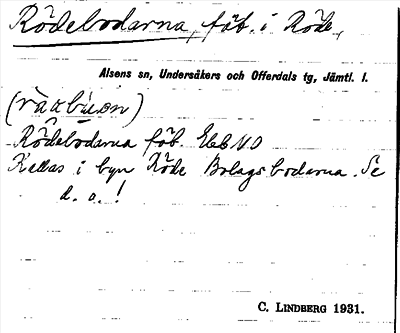 Rödebodarna, fäb. i Röde,
Alsens sn, Undersåkers och Offerdals tg, Jämtl. l.
Rödebodarna fäb.
Kallas i byn Röde Bolagsbodarna. Se
d. o. !
C. LINDBERG 1931.